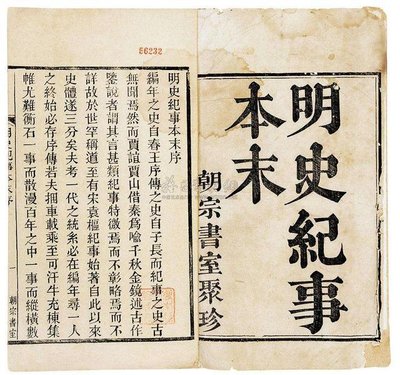 明史紀事
本末
朝宗書室聚珍
56232
明史紀事本末序
編年之史自春王序傳之史自子長而紀事之史古
無聞焉然而賈誼賈山借秦爲喻千秋金鏡述古作
鑒說者謂其言甚類紀事特微焉而不彰略焉而不
詳故於世罕稱道至有宋袁樞紀事始著自此以來
史體遂三分矣夫考一代之統系必在編年尋一人
之終始必存序傳若夫捆車載乘至可汗牛充棟集
帷尤難衡石一事而散漫百年之中一事而縱橫數
朝宗書室